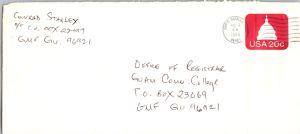 Conrad Stanley
P.O. BOX 23069
GMF GU 96921
USA 20c
Office of Registrar
Guam Comm. College
P.O. BOX 23069
GMF GU 96921